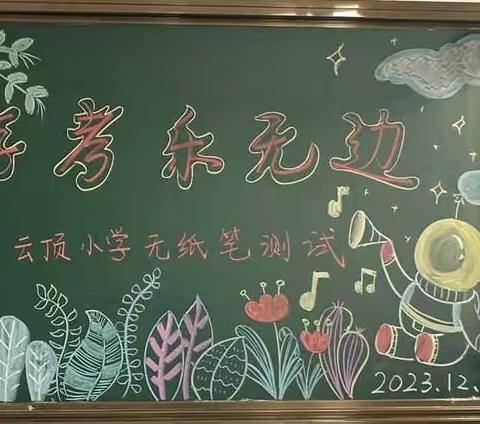 考乐无边
云顶小学无纸笔测试
2023.12.